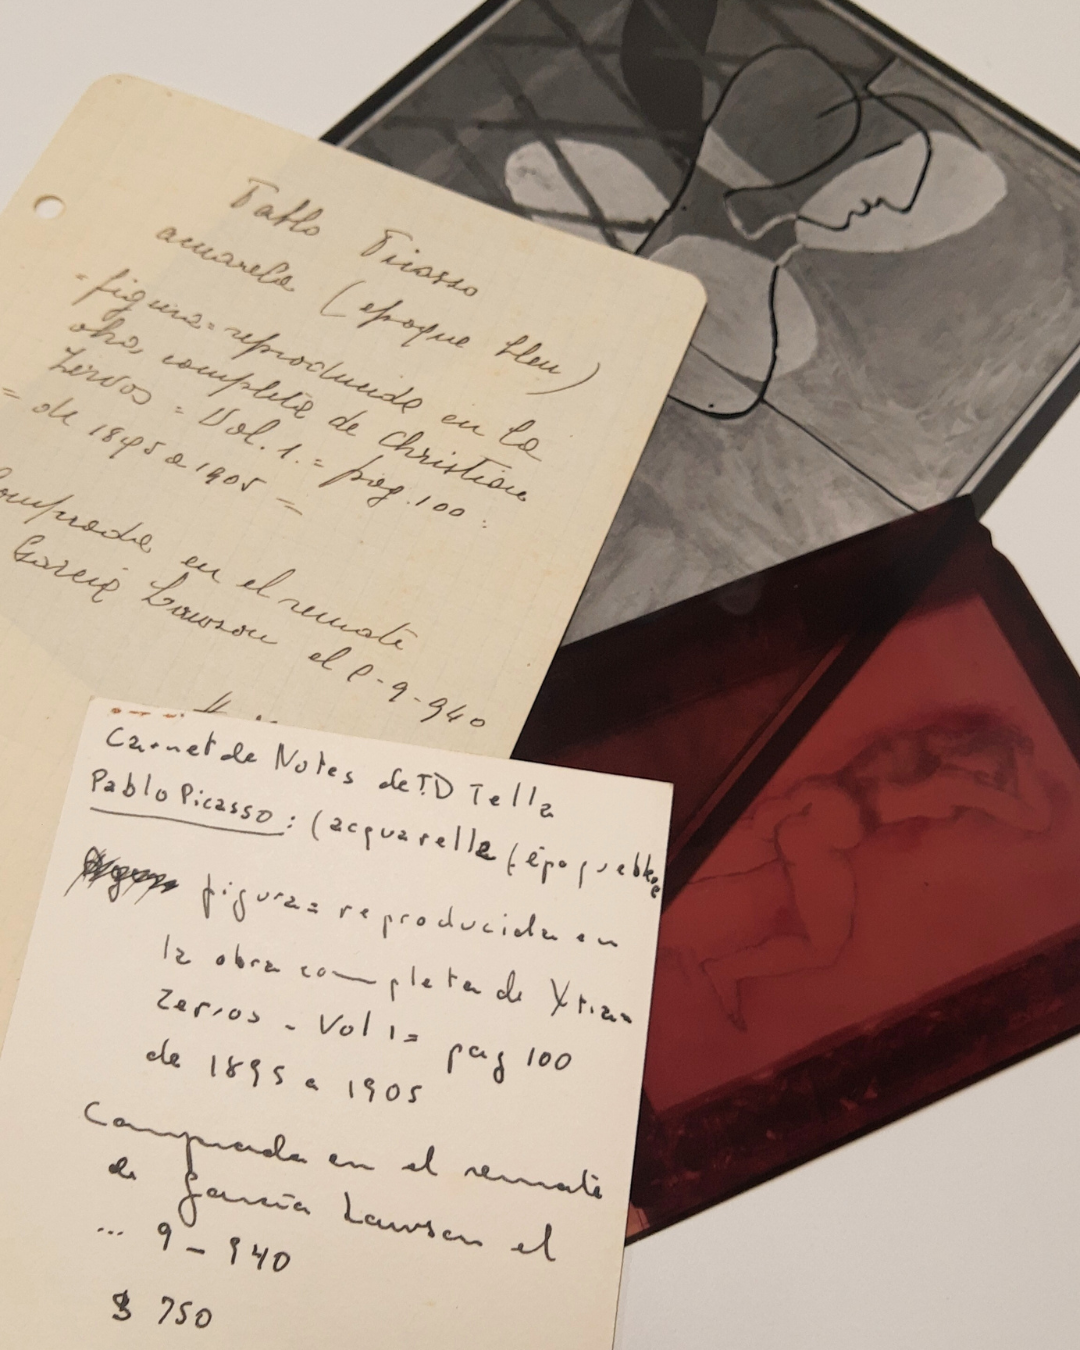 Pablo Picasso
acuarela (epoque bleu)
= figura = reproducida en la
obra completa de Christian
Zervos = Vol. 1. = pag. 100 =
= de 1895 a 1905 =
Comprada en el remate
Garcia Lawson el 9-940
Carnet de Notes de T.D Tella
Pablo Picasso: (acquarella (époque bleue
figura = reproducida en
la obra completa de Xtian
Zervos - Vol 1 = pag 100
de 1895 a 1905
Comprada en el remate
de García Lawson el
... 9 - 940
$ 750